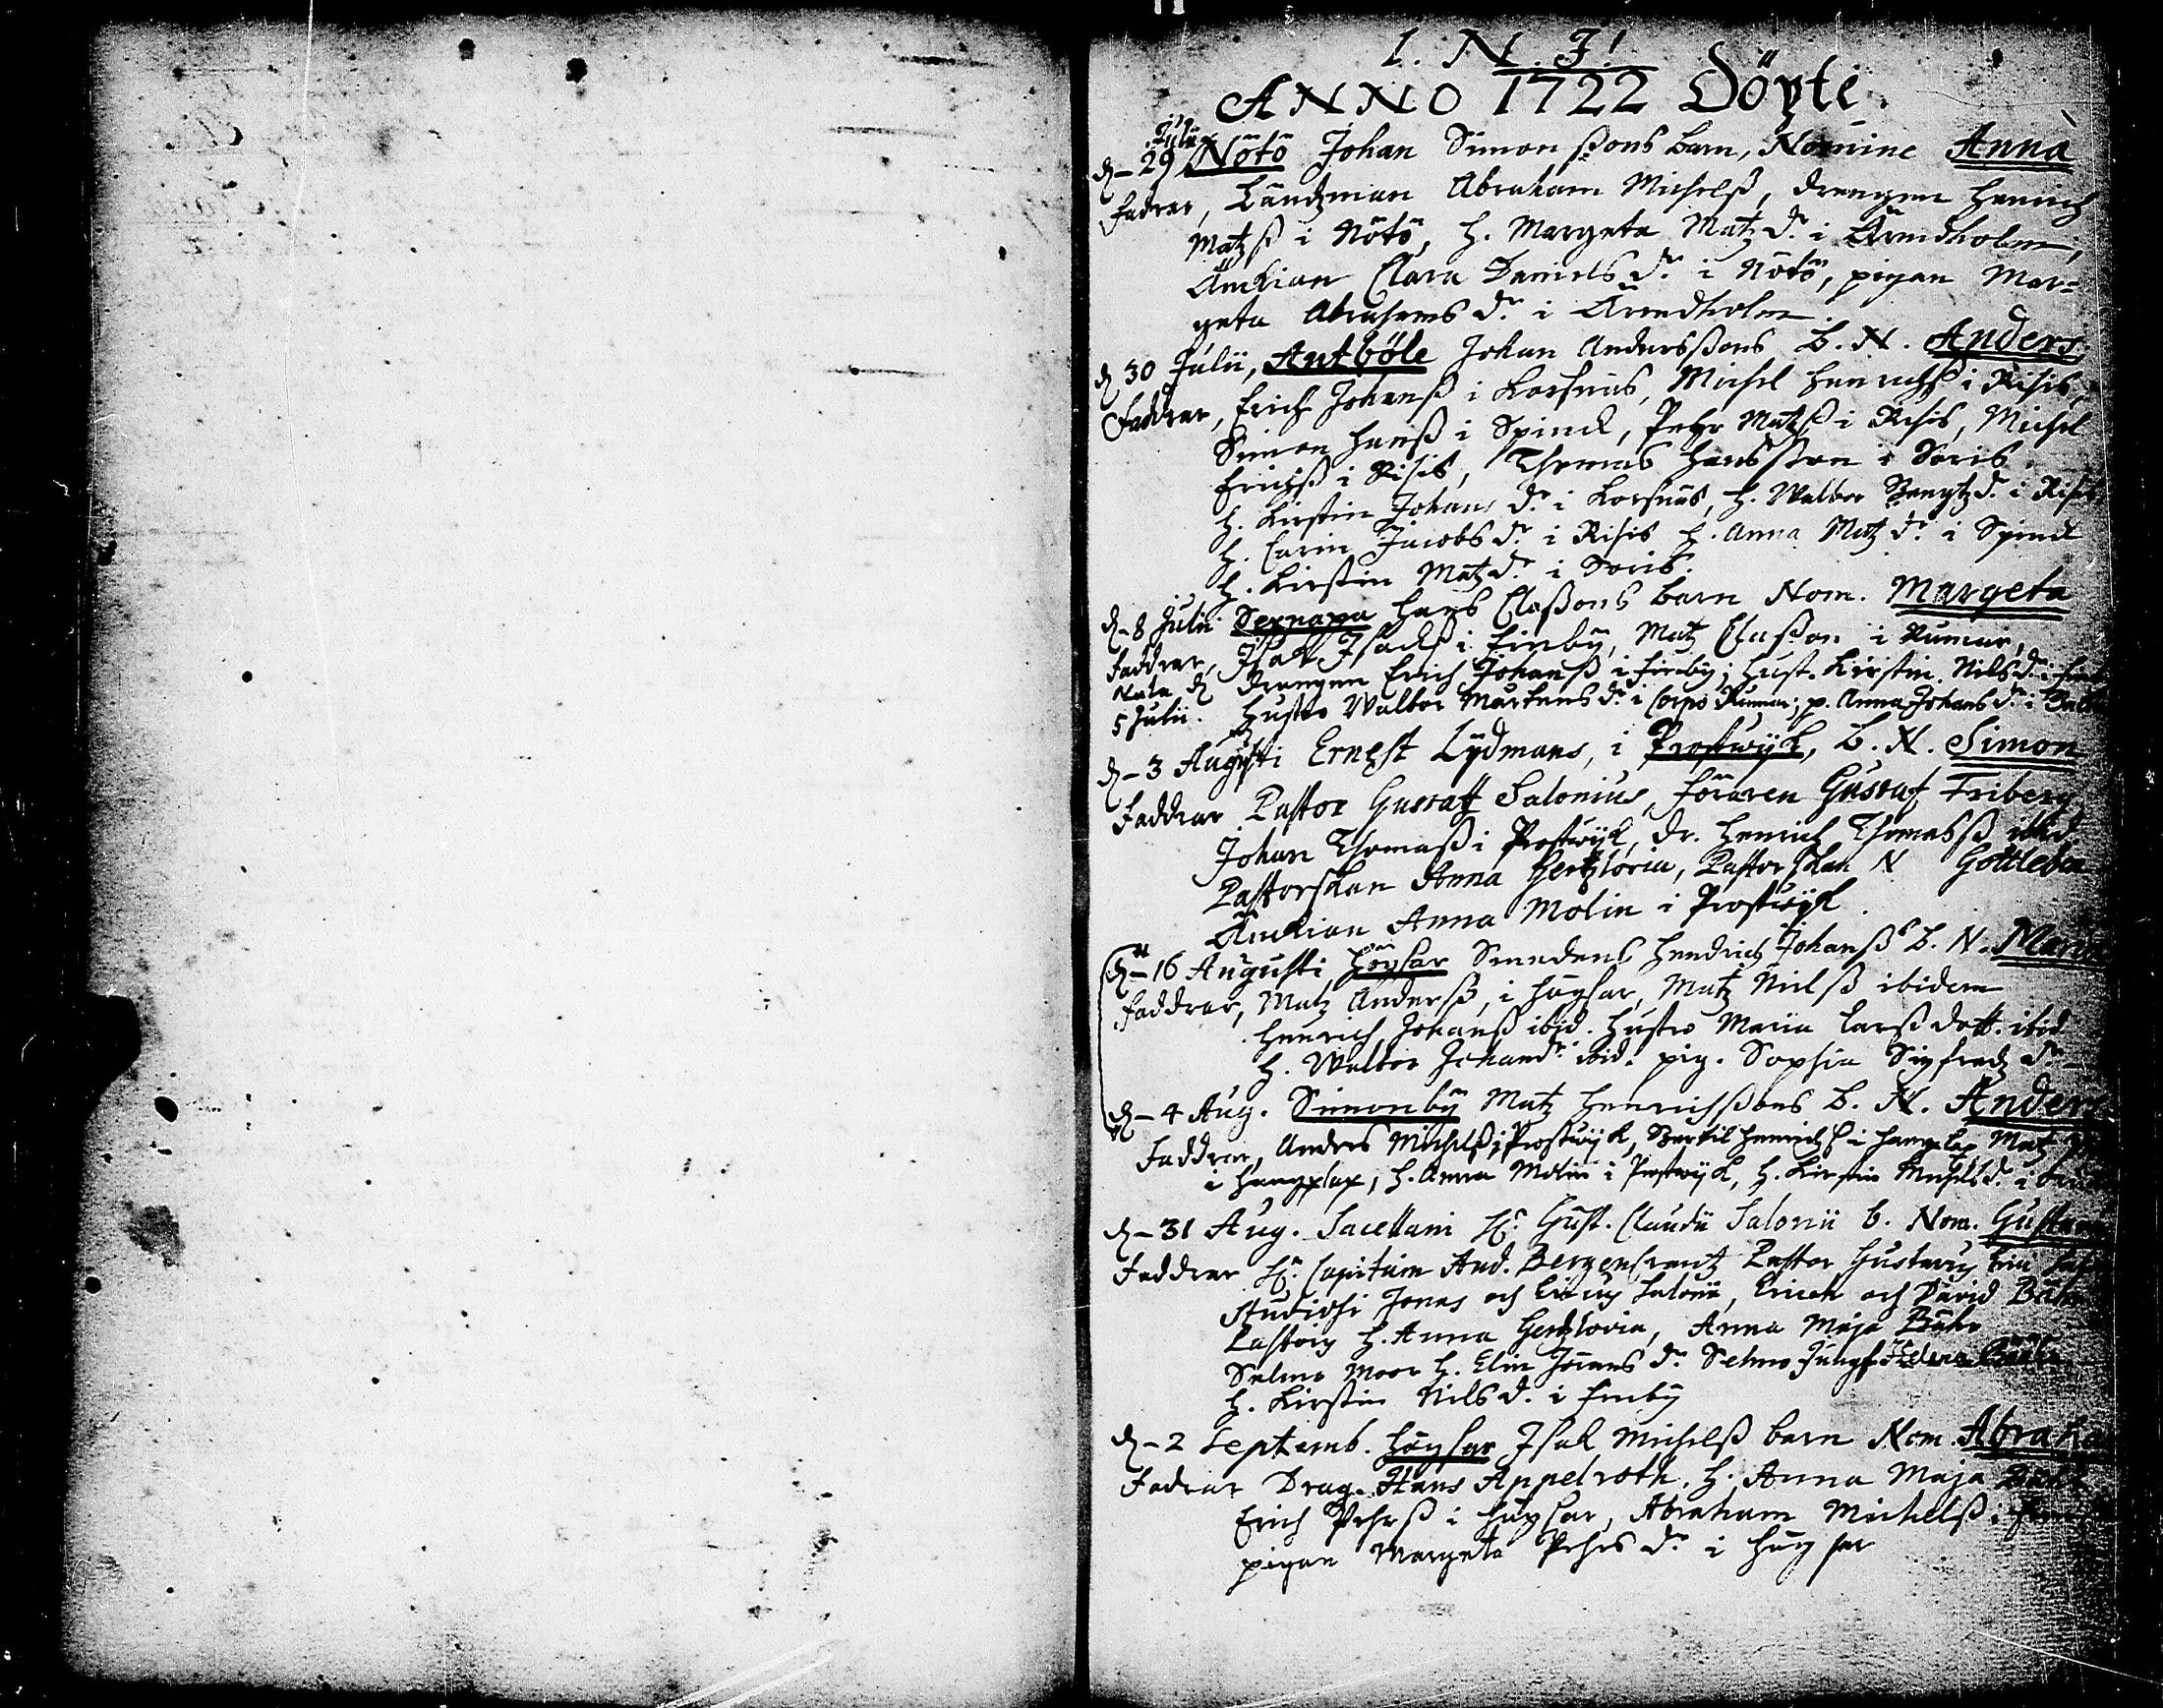 I. N. J!
ANNO 1722 Döpte.
Julii
d. 29 Nötö Johan Simonßons barn, Nomine Anna
Fadrar, Ländzman Abraham Michelß, drengen Henrich
Matzß i Nötö, h. Margeta Matzdr i Ärmdholm,
Änckian Clara Danielsdr i Nötö, pigan Mar=
geta Abrahamsdr i Ärmdholm.
d. 30 Julii, Antböle Johan Anderssons B. N. Anders,
Faddrar, Erich Johanß i Korsnäs, Michel Henrichß i Risis,
Simon Hanß i Spinck, Pehr Matzß i Risis, Michel
Erichß i Risis, Thomas Hansson i Soris.
h. Kirstin Johansdr i Korsnäs, h. Walbor Bengtzdr i Risis
h. Carin Jacobsdr i Risis h. Anna Matzdr i Spinck
h. Kirstin Matzdr i Soris.
d. 8 Julii Sexnapa Hans Claßons barn Nom. Margeta
Faddrar, Isak Isacß i Finby, Matz Claßon i Rumar,
Nata d. drengen Erich Johanß i Finby; Hust. Kirstin Nilsdr i
5 Julii. Hustro Walbor Mårtensdr i Corpo Rumar; p. Anna Johansdr i
d. 3 Augusti Ernest Lydmans, i Prostwijk, B. N. Simon
Faddrar Pastor Gustaff Salonius, Föraren Gustaf Friberg
Johan Thomaß i Prostwijk, dr. Henrich Thomasß ibid
Pastorskan Anna Gertzlovia, Pastorskan N Gottleben
Änckian Anna Molin i Prostwijk.
d. 16 Augusti Högsar Smedens Hendrich Johanß B. N. Maria
Faddrar, Matz Anderß, i Högsar, Matz Nielß ibidem
Henrich Johanß ibid. Hustro Maria Larßdott. ibid
h. Walbor Johandr ibid. pig. Sophia Sigfredzdr
d. 4 Aug. Simonby Matz Henrichßons B. N. Anders
Faddrar, Anders Michelß i Prostwijk, Bertil Henrichß i Hangslax Matz
i Hangslax, h. Anna Molin i Prostwijk, h. Kirstin Michelsdr i
d. 31 Aug. Sacellani Hr Gust. Claudii Salonii b. Nom. Gustavus
Faddrar Hr Capitain And. Bergencreutz Pastor Gustavus
Studiosi Jonas och Ericus Salonii, Erich och David
Pastoris h. Anna Gertzlovia, Anna Maja Bähr
Selmo Moor h. Elin Jöransdr Selmo Jungf.
h. Kirstin Nilsd. i Finby
d. 2 Septemb. Högsar Isak Michelß barn Nom. Abraham
Fadrar Drag. Hans Appelroth, h. Anna Maja
Erich Pehrß i Högsar, Abraham Michelß i
pigan Margeta Pehrsdr i Högsar